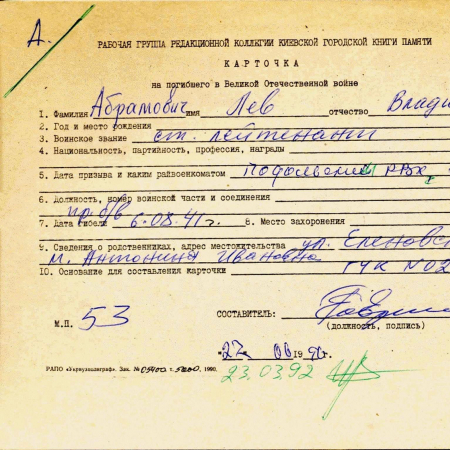 А.
РАБОЧАЯ ГРУППА РЕДАКЦИОННОЙ КОЛЛЕГИИ КИЕВСКОЙ ГОРОДСКОЙ КНИГИ ПАМЯТИ
КАРТОЧКА
на погибшего в Великой Отечественной войне
1. Фамилия Абрамович имя Лев отчество Влади
2. Год и место рождения
3. Воинское звание ст. лейтенант
4. Национальность, партийность, профессия, награды
5. Дата призыва и каким райвоенкоматом Подольский РВК
6. Должность, номер воинской части и соединения
пр. б/в
7. Дата гибели 6.08.41 г. 8. Место захоронения
9. Сведения о родственниках, адрес местожительства ул. Еленовс
м. Антонина Ивановна
10. Основание для составления карточки ГУК № 02
СОСТАВИТЕЛЬ:
(должность, подпись)
М.П. 53
"27" 06 1990 г.
РАПО «Укрвузполиграф». Зак. № 05400 т. 5000. 1990.
23.03.92